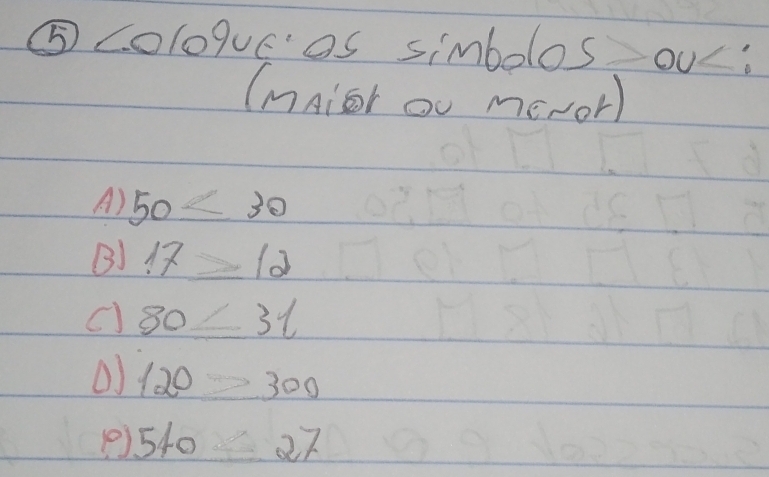 5 Coloque: os simbolos > ou < :
(MAior ou menor)
A) 50 < 30
B) 17 > 12
C) 80 < 31
D) 120 > 300
E) 510 < 27